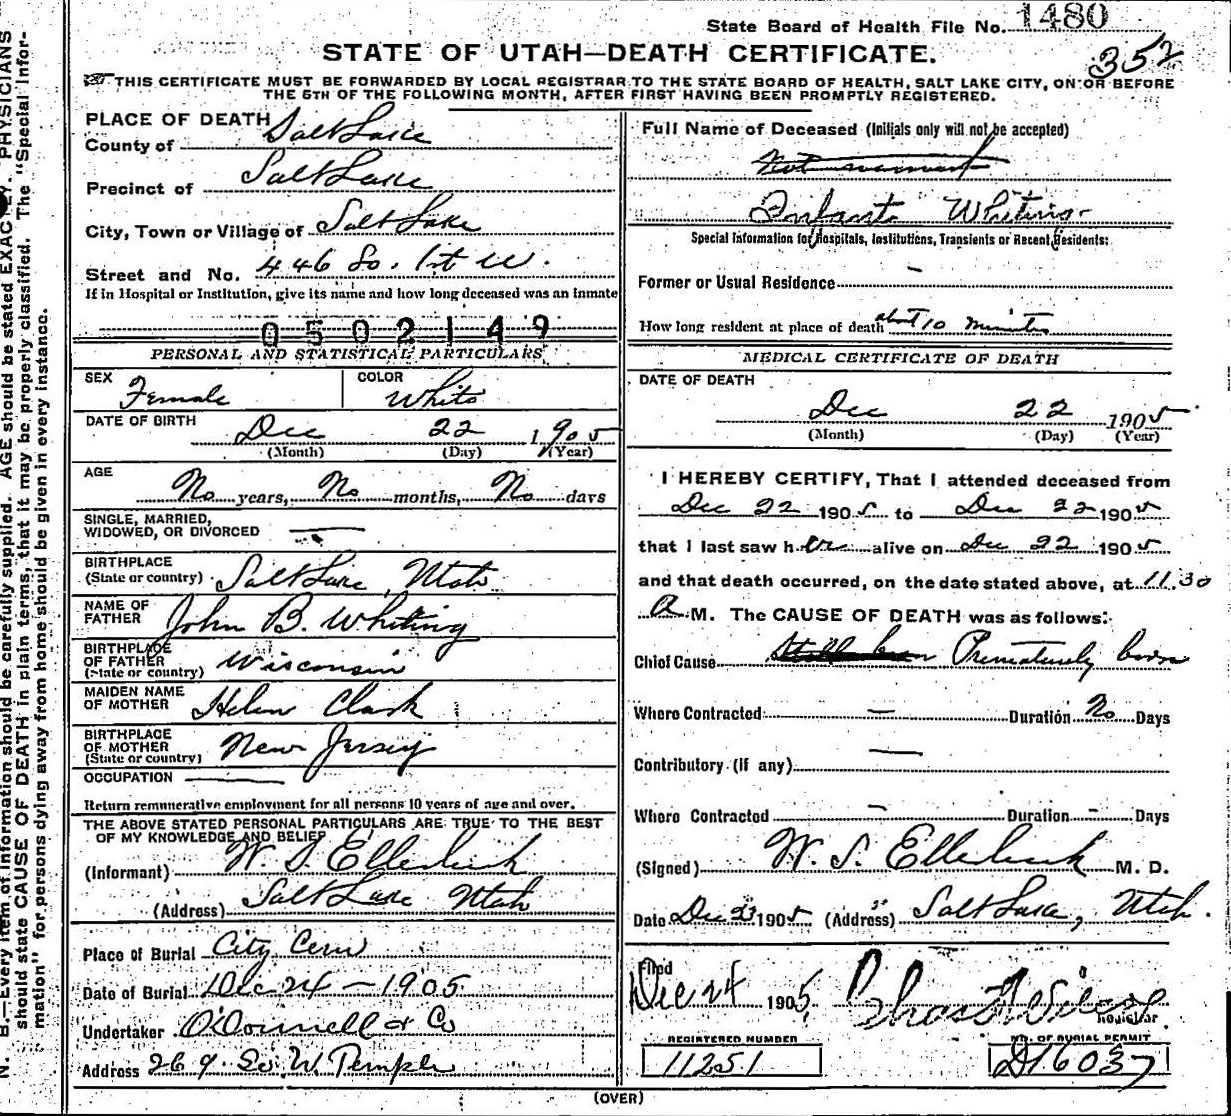 State Board of Health File No. 1480
352
STATE OF UTAH—DEATH CERTIFICATE.
THIS CERTIFICATE MUST BE FORWARDED BY LOCAL REGISTRAR TO THE STATE BOARD OF HEALTH, SALT LAKE CITY, ON OR BEFORE
THE 5TH OF THE FOLLOWING MONTH, AFTER FIRST HAVING BEEN PROMPTLY REGISTERED.
PLACE OF DEATH
County of Salt Lake
Precinct of Salt Lake
City, Town or Village of Salt Lake
Street and No. 446 So. 1st W.
If in Hospital or Institution, give its name and how long deceased was an inmate
0502149
PERSONAL AND STATISTICAL PARTICULARS
SEX Female COLOR White
DATE OF BIRTH Dec 22 1905
(Month) (Day) (Year)
AGE
No years, No months, No days
SINGLE, MARRIED,
WIDOWED, OR DIVORCED
BIRTHPLACE
(State or country) Salt Lake, Utah
NAME OF
FATHER John B. Whiting
BIRTHPLACE
OF FATHER
(State or country) Wisconsin
MAIDEN NAME
OF MOTHER Helen Clark
BIRTHPLACE
OF MOTHER
(State or country) New Jersey
OCCUPATION
Return remunerative employment for all persons 10 years of age and over.
THE ABOVE STATED PERSONAL PARTICULARS ARE TRUE TO THE BEST
OF MY KNOWLEDGE AND BELIEF
(Informant) W. S. Ellerbeck
(Address) Salt Lake Utah
Place of Burial City Cem
Date of Burial Dec 24 - 1905
Undertaker O'Donnell & Co
Address 269 So W Temple
Full Name of Deceased (Initials only will not be accepted)
Not
Infant Whiting
Special Information for Hospitals, Institutions, Transients or Recent Residents:
Former or Usual Residence -
How long resident at place of death about 10 minutes
MEDICAL CERTIFICATE OF DEATH
DATE OF DEATH
Dec 22 1905
(Month) (Day) (Year)
I HEREBY CERTIFY, That I attended deceased from
Dec 22 1905 to Dec 22 1905
that I last saw her alive on Dec 22 1905
and that death occurred, on the date stated above, at 11.30
A M. The CAUSE OF DEATH was as follows:
Chief Cause Stillborn Prematurely born
Where Contracted — Duration No Days
Contributory (If any) —
Where Contracted - Duration - Days
(Signed) W. S. Ellerbeck M. D.
Date Dec 23 1905 (Address) Salt Lake, Utah.
Filed
Dec 24 1905 Chas Wilcox
Registrar
REGISTERED NUMBER
11251
NO. OF BURIAL PERMIT
D16037
(OVER)
N. B.—Every item of information should be carefully supplied. AGE should be stated EXACTLY. PHYSICIANS
should state CAUSE OF DEATH in plain terms, that it may be properly classified. The "Special Infor-
mation" for persons dying away from home should be given in every instance.